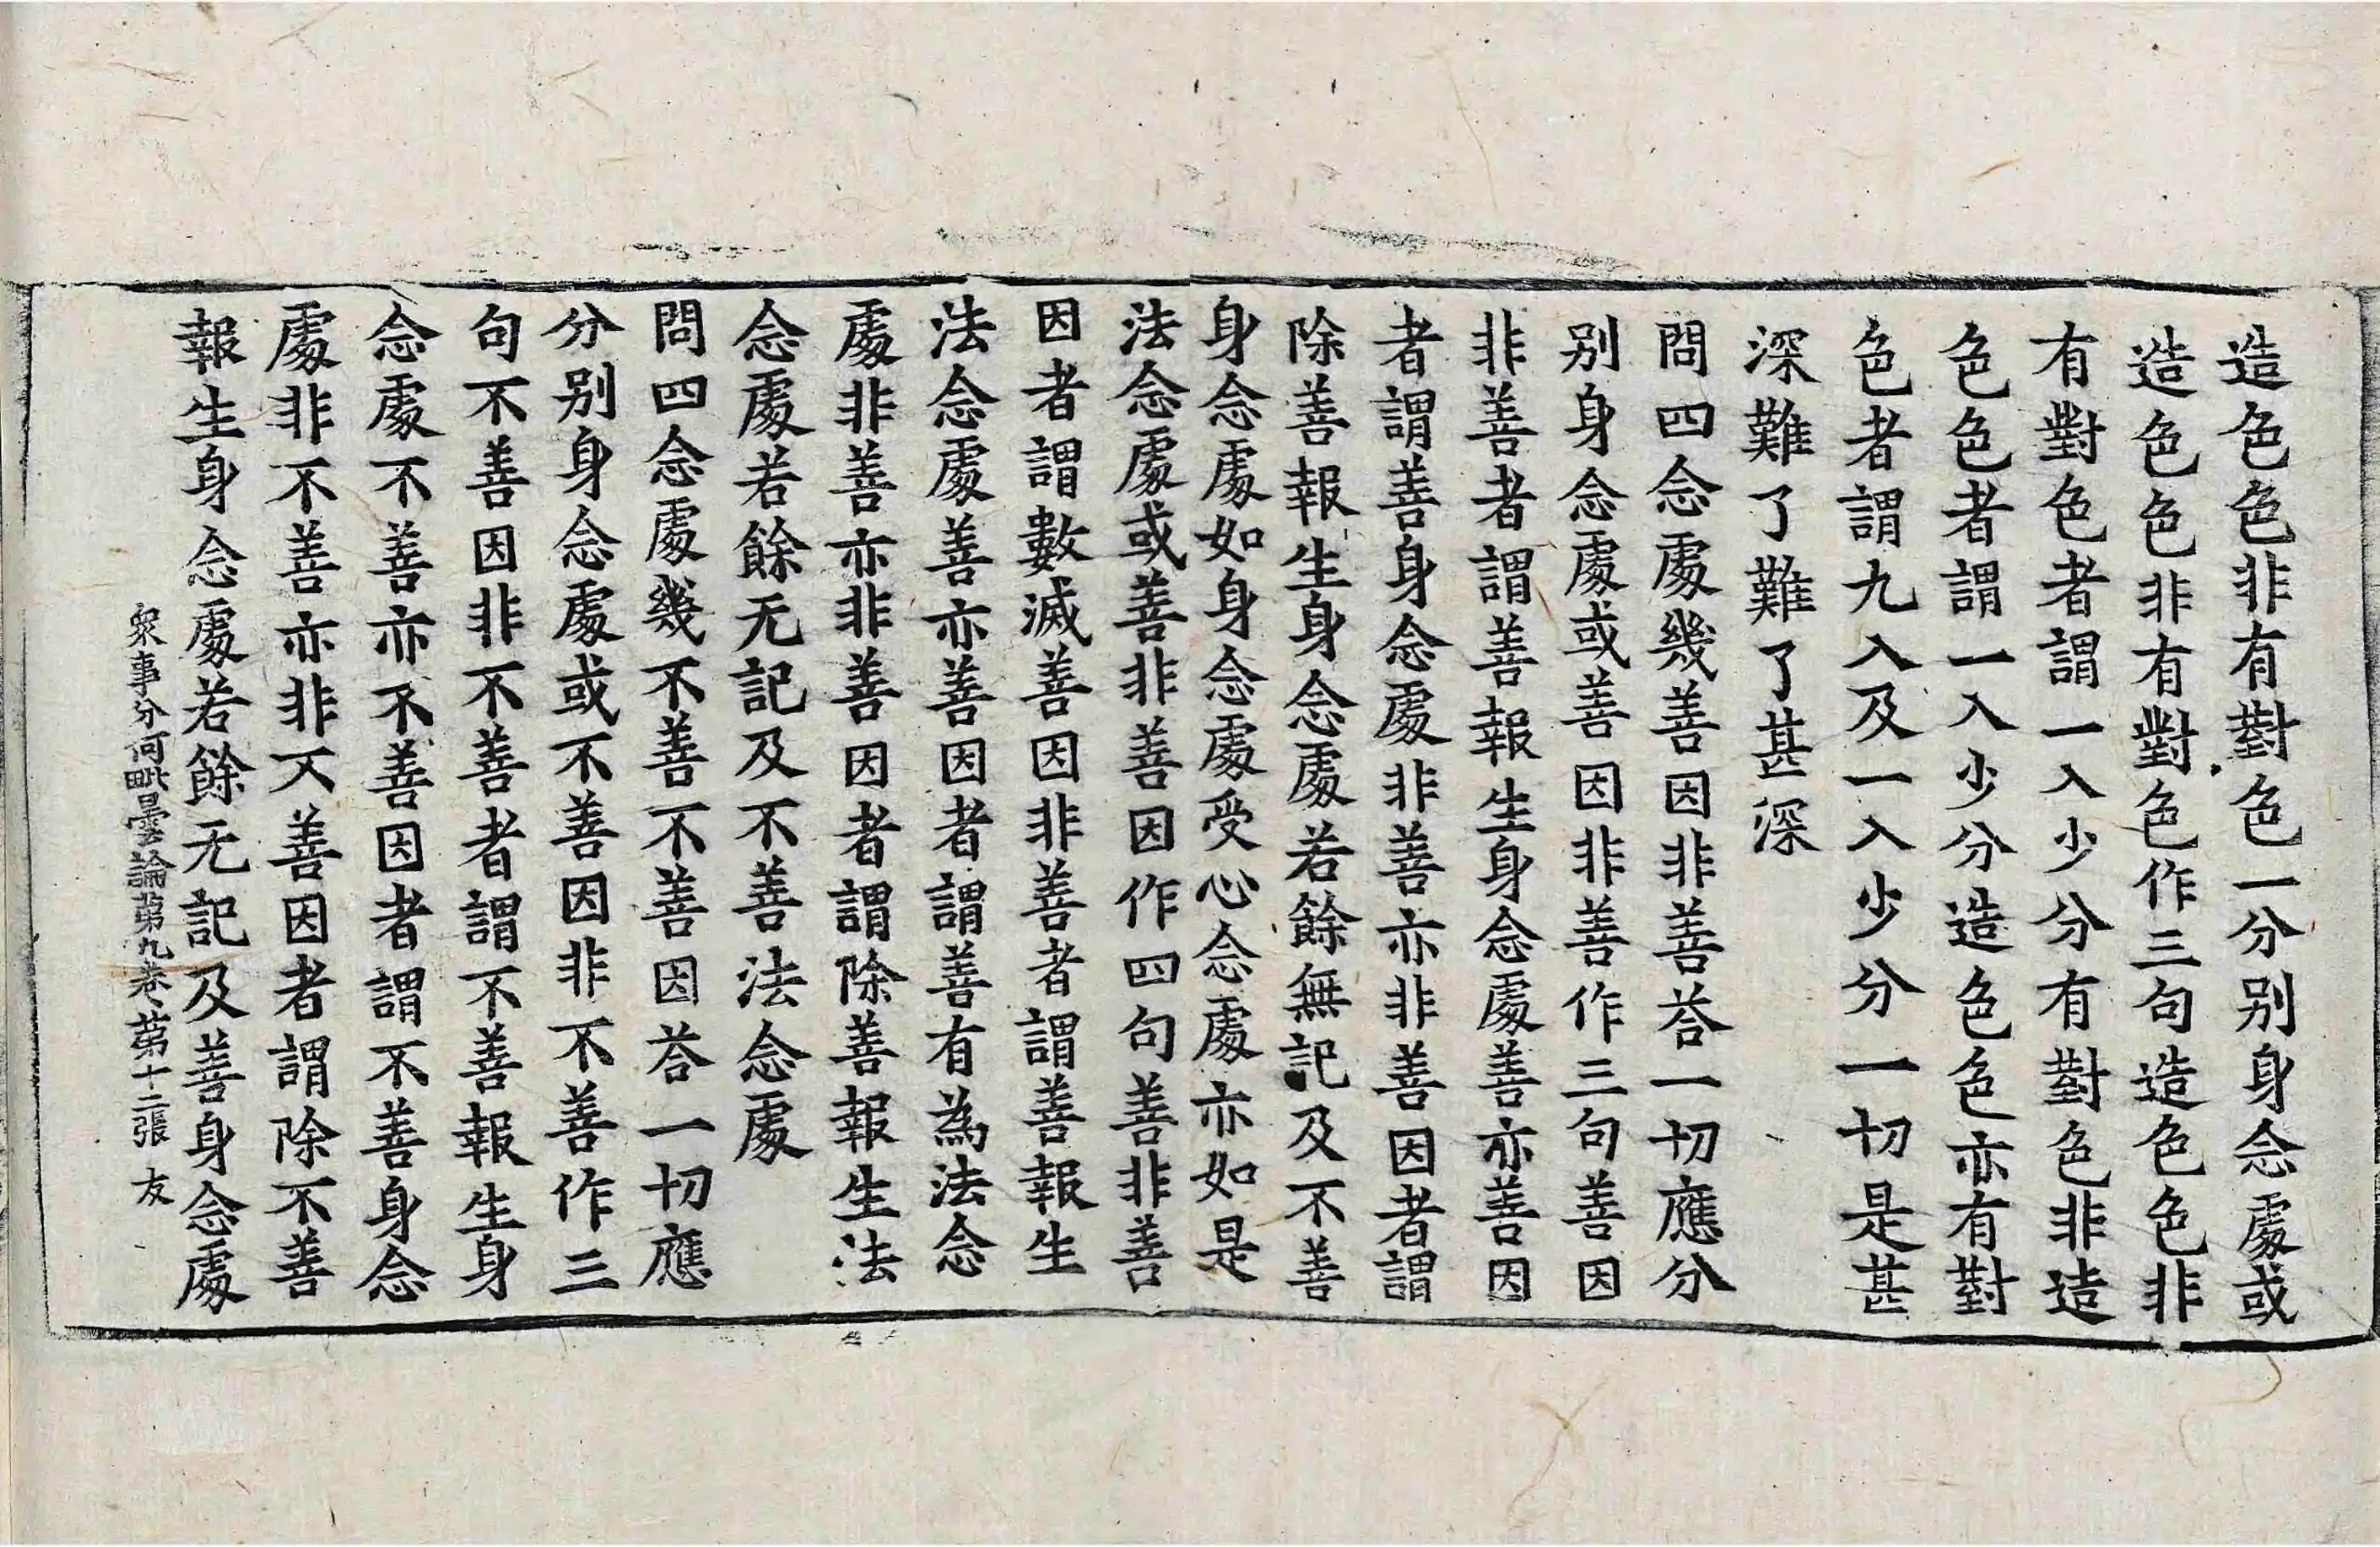 造色色非有對色一分別身念處或
造色色非有對色作三句造色色非
有對色者謂一入少分有對色非造
色色者謂一入少分造色色亦有對
色者謂九入及一入少分一切是甚
深難了難了甚深
問四念處幾善因非善荅一切應分
別身念處或善因非善作三句善因
非善者謂善報生身念處善亦善因
者謂善身念處非善亦非善因者謂
除善報生身念處若餘無記及不善
身念處如身念處受心念處亦如是
法念處或善非善因作四句善非善
因者謂數滅善因非善者謂善報生
法念處善亦善因者謂善有為法念
處非善亦非善因者謂除善報生法
念處若餘无記及不善法念處
問四念處幾不善不善因荅一切應
分別身念處或不善因非不善作三
句不善因非不善者謂不善報生身
念處不善亦不善因者謂不善身念
處非不善亦非不善因者謂除不善
報生身念處若餘无記及善身念處
衆事分阿毗曇論第九卷第十二張 友